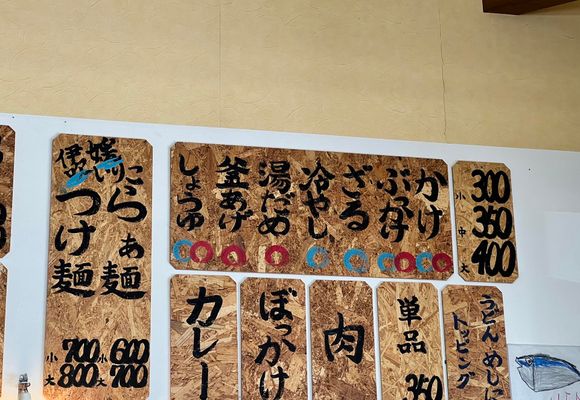 かけ
ぶっかけ
ざる
冷やし
湯だめ
釜あげ
しょうゆ
小 300
中 350
大 400
らぁ麺
小 600
大 700
つけ麺
小 700
大 800
うどん、めしに
トッピング
単品
350
肉
ぼっかけ
カレー